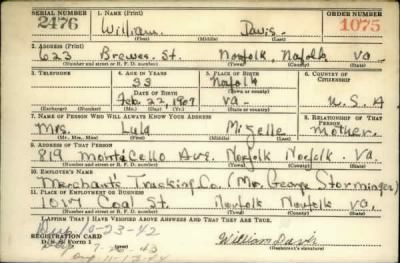 SERIAL NUMBER 1. NAME (Print) ORDER NUMBER
2476 William Davis. 1075
(First) (Middle) (Last)
2. ADDRESS (Print)
623 Brewer St. Norfolk, Norfolk Va
(Number and street or R. F. D. number) (Town) (County) (State)
3. TELEPHONE 4. AGE IN YEARS 5. PLACE OF BIRTH 6. COUNTRY OF CITIZENSHIP
33 Norfolk
DATE OF BIRTH (Town or county)
Feb. 22, 1907 Va. U. S. A
(Exchange) (Number) (Mo.) (Day) (Yr.) (State or country)
7. NAME OF PERSON WHO WILL ALWAYS KNOW YOUR ADDRESS 8. RELATIONSHIP OF THAT PERSON
Mrs. Lula Mizelle mother.
(Mr., Mrs., Miss) (First) (Middle) (Last)
9. ADDRESS OF THAT PERSON
819 Monticello Ave. Norfolk Norfolk. Va.
(Number and street or R. F. D. number) (Town) (County) (State)
10. EMPLOYER'S NAME
Merchants Trucking Co. (Mr. George Storminger)
11. PLACE OF EMPLOYMENT OR BUSINESS
1017 Coal St. Norfolk Norfolk Va.
(Number and street or R. F. D. number) (Town) (County) (State)
I AFFIRM THAT I HAVE VERIFIED ABOVE ANSWERS AND THAT THEY ARE TRUE.
Dup 10-23-42
REGISTRATION CARD William Davis
D. S. S. Form 1 (Registrant's signature)